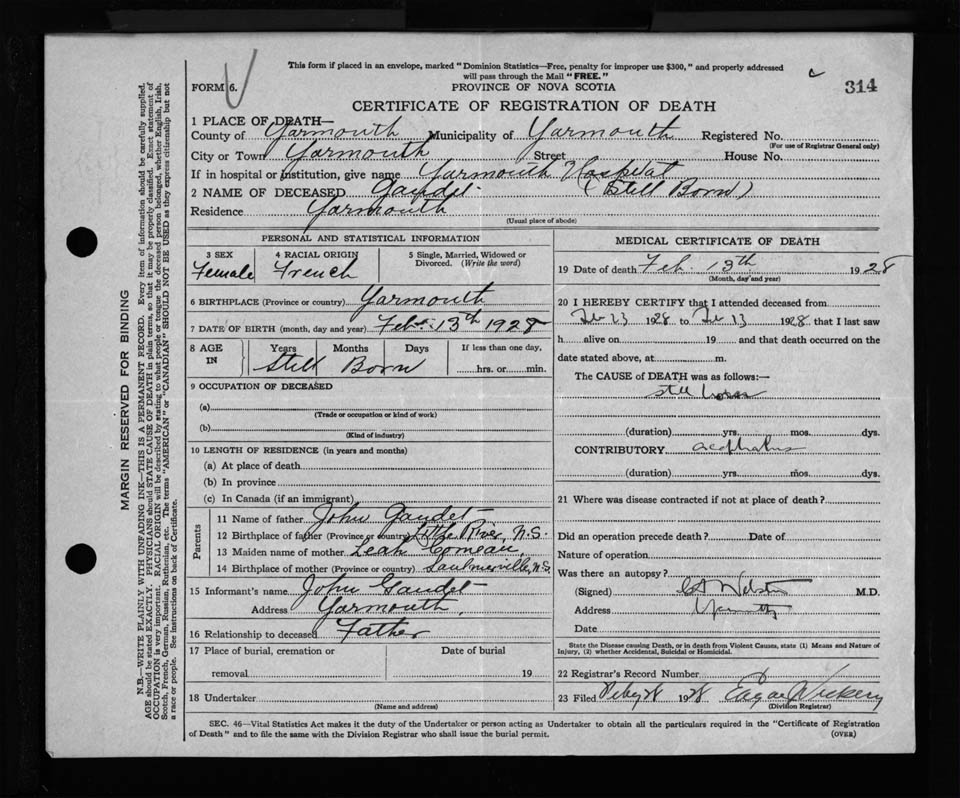 This form if placed in an envelope, marked "Dominion Statistics—Free, penalty for improper use $300," and properly addressed
will pass through the Mail "FREE."
FORM 6.
PROVINCE OF NOVA SCOTIA
314
CERTIFICATE OF REGISTRATION OF DEATH
1 PLACE OF DEATH—
County of Yarmouth Municipality of Yarmouth Registered No.
(For use of Registrar General only)
City or Town Yarmouth Street House No.
If in hospital or institution, give name Yarmouth Hospital
2 NAME OF DECEASED Gaudet (Still Born)
Residence Yarmouth
(Usual place of abode)
PERSONAL AND STATISTICAL INFORMATION
3 SEX 4 RACIAL ORIGIN 5 Single, Married, Widowed or
Divorced. (Write the word)
Female French
6 BIRTHPLACE (Province or country) Yarmouth
7 DATE OF BIRTH (month, day and year) Feb. 13th 1928
8 AGE IN Years Months Days If less than one day,
Still Born hrs. or min.
9 OCCUPATION OF DECEASED
(a)
(Trade or occupation or kind of work)
(b)
(Kind of industry)
10 LENGTH OF RESIDENCE (in years and months)
(a) At place of death
(b) In province
(c) In Canada (if an immigrant)
Parents
11 Name of father John Gaudet
12 Birthplace of father (Province or country) Little River, N.S.
13 Maiden name of mother Leah Comeau,
14 Birthplace of mother (Province or country) Saulnierville, N.S.
15 Informant's name John Gaudet
Address Yarmouth,
16 Relationship to deceased Father
17 Place of burial, cremation or Date of burial
removal 19
18 Undertaker
(Name and address)
MEDICAL CERTIFICATE OF DEATH
19 Date of death Feb. 13th 1928
(Month, day and year)
20 I HEREBY CERTIFY that I attended deceased from
13 1928 to 13 1928 that I last saw
h alive on 19 and that death occurred on the
date stated above, at m.
The CAUSE of DEATH was as follows:—
still born
(duration) yrs. mos. dys.
CONTRIBUTORY acephalus
(duration) yrs. mos. dys.
21 Where was disease contracted if not at place of death?
Did an operation precede death? Date of
Nature of operation
Was there an autopsy?
(Signed) Webster M.D.
Address
Date
State the Disease causing Death, or in death from Violent Causes, state (1) Means and Nature of
Injury, (2) whether Accidental, Suicidal or Homicidal.
22 Registrar's Record Number
23 Filed 28 1928 Edgar Vickery
(Division Registrar)
SEC. 46—Vital Statistics Act makes it the duty of the Undertaker or person acting as Undertaker to obtain all the particulars required in the "Certificate of Registration
of Death" and to file the same with the Division Registrar who shall issue the burial permit. (OVER)
MARGIN RESERVED FOR BINDING
N.B.—WRITE PLAINLY WITH UNFADING INK—THIS IS A PERMANENT RECORD. Every item of information should be carefully supplied.
AGE should be stated EXACTLY. PHYSICIANS should STATE CAUSE OF DEATH in plain terms, so that it may be properly classified. Exact statement of
OCCUPATION is very important. RACIAL ORIGIN will be described by stating to what people or tongue the deceased person belonged, whether English, Irish,
Scotch, French, German, Russian, Ruthenian, etc. The terms "AMERICAN" or "CANADIAN" SHOULD NOT BE USED as they express citizenship but not
a race or people. See instructions on back of Certificate.